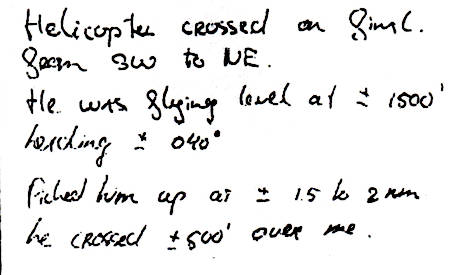 Helicopter crossed on final.
from SW to NE.
He was flying level at ± 1500'
heading ± 040°
Picked him up at ± 1.5 to 2 nm
he crossed ± 500' over me.